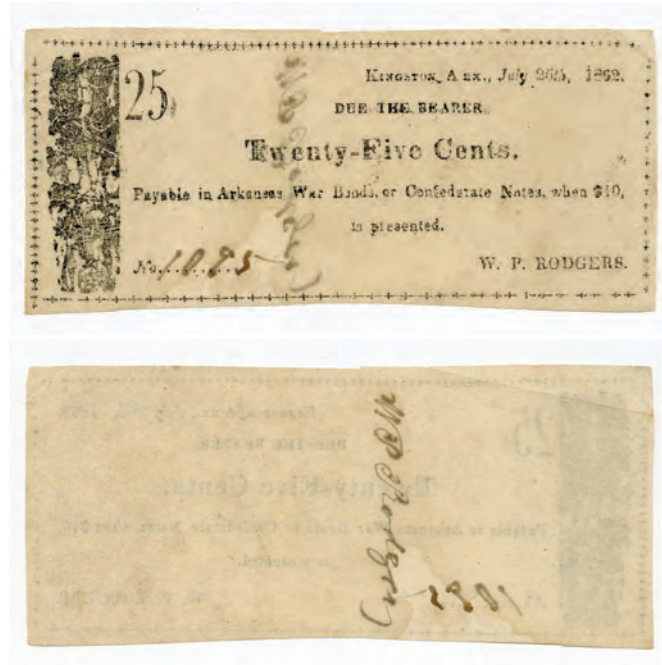 25
KINGSTON, ARK., July 26th, 1862.
DUE THE BEARER
Twenty-Five Cents.
Payable in Arkansas War Bonds, or Confederate Notes, when $10,
is presented.
No.......
W. P. RODGERS.
W P Rodgers